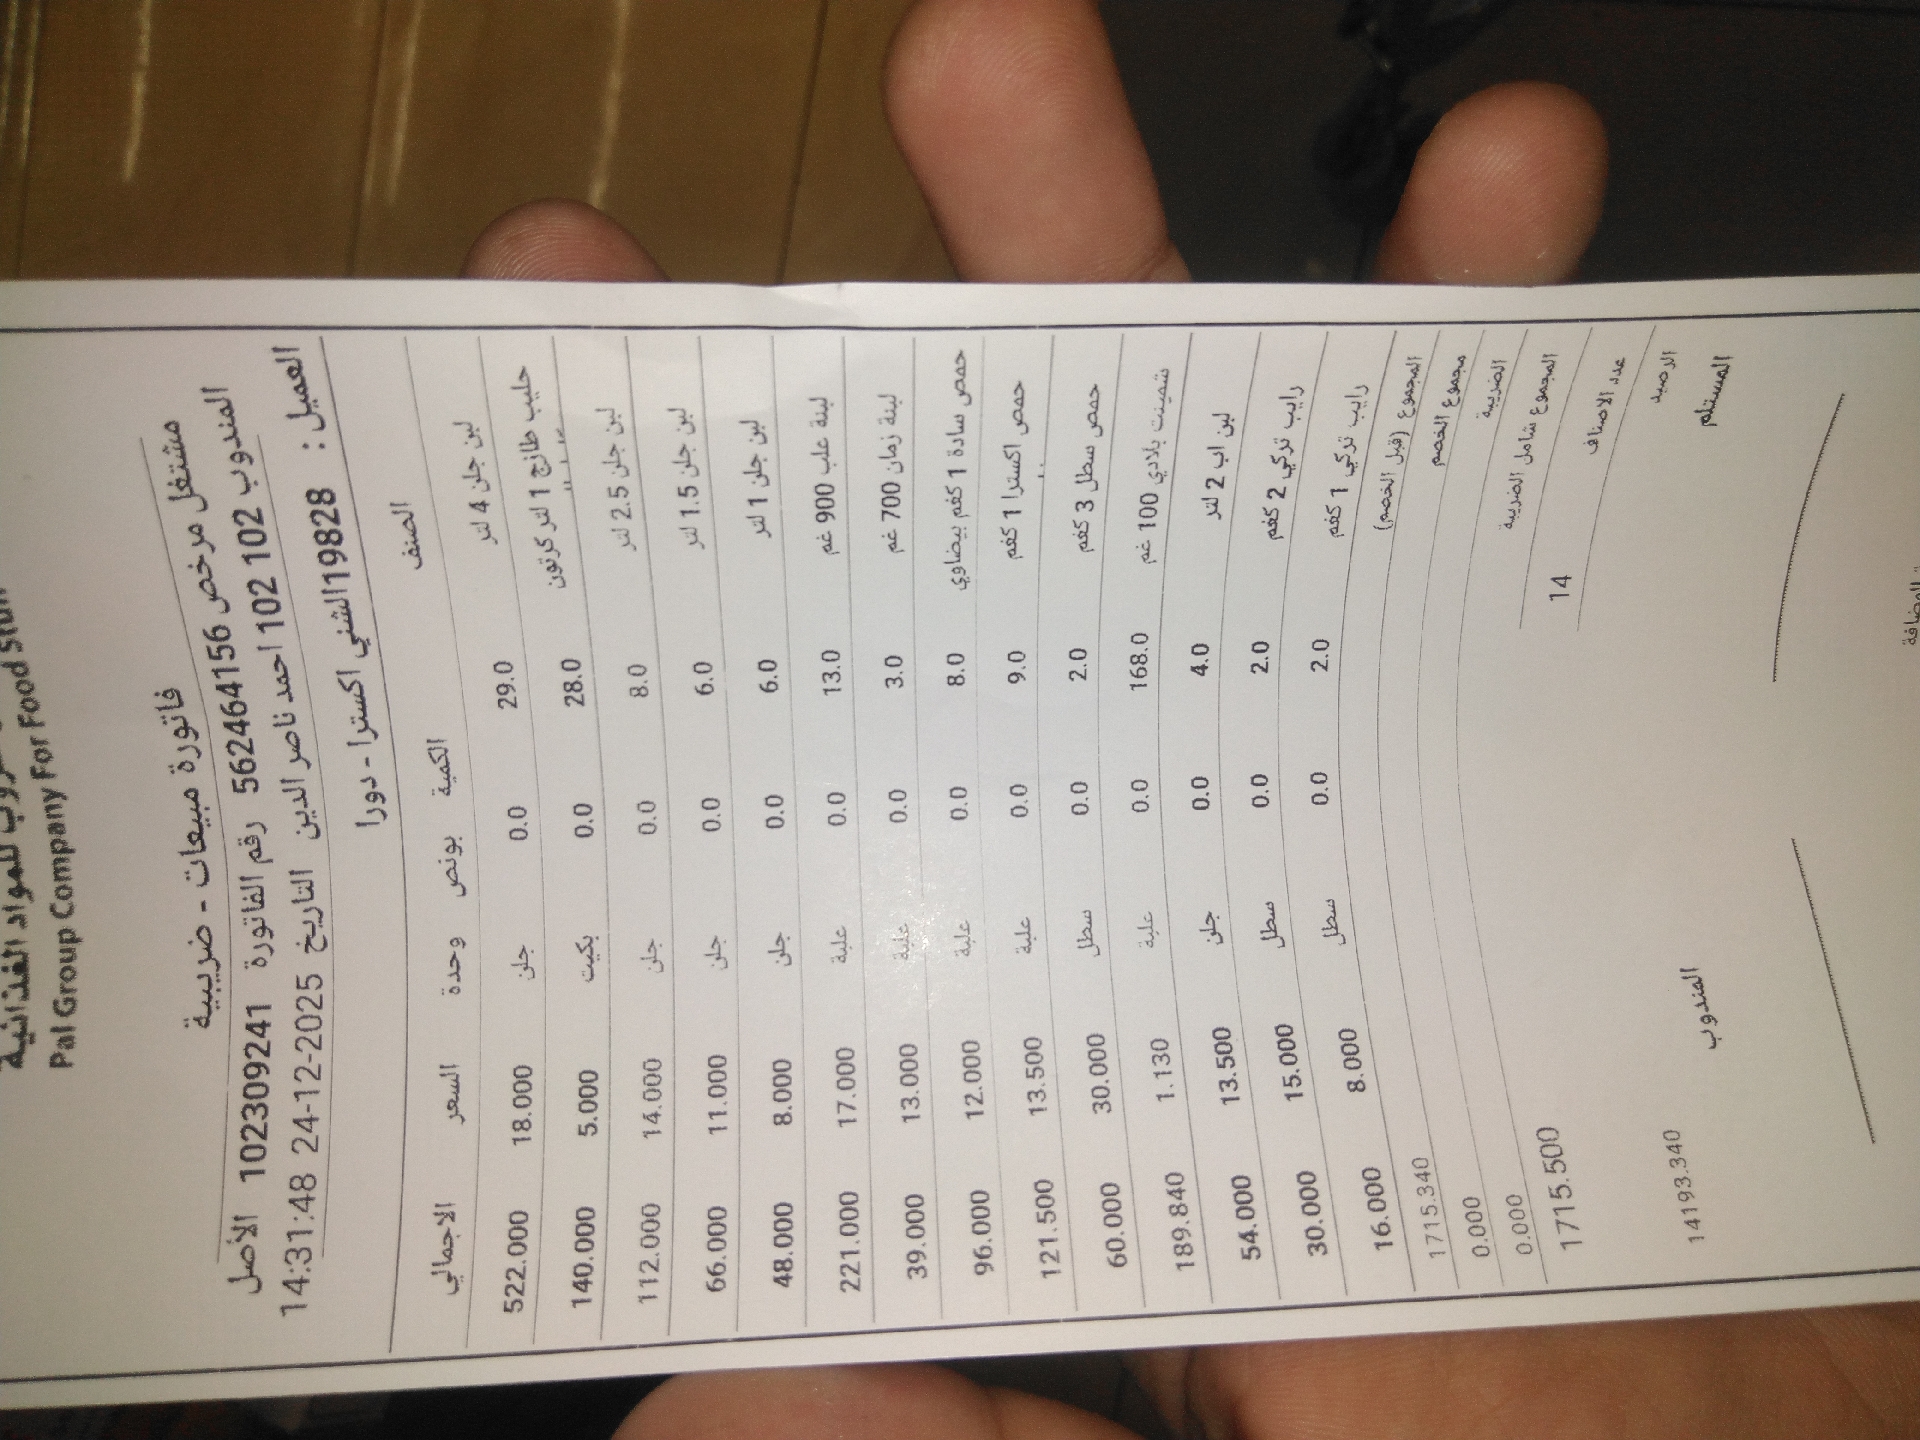 للمواد الغذائية
Pal Group Company For Food Stuff
فاتورة مبيعات - ضريبية
مشتغل مرخص 562464156 رقم الفاتورة 102309241 الأصل
المندوب 102 102 احمد ناصر الدين التاريخ 24-12-2025 14:31:48
العميل : 19828الشني اكسترا - دورا
الصنف الكمية بونص وحدة السعر الاجمالي
لبن جلن 4 لتر 29.0 0.0 جلن 18.000 522.000
حليب طازج 1 لتر كرتون 28.0 0.0 بكيت 5.000 140.000
لبن جلن 2.5 لتر 8.0 0.0 جلن 14.000 112.000
لبن جلن 1.5 لتر 6.0 0.0 جلن 11.000 66.000
لبن جلن 1 لتر 6.0 0.0 جلن 8.000 48.000
لبنة علب 900 غم 13.0 0.0 علبة 17.000 221.000
لبنة زمان 700 غم 3.0 0.0 علبة 13.000 39.000
حمص سادة 1 كغم بيضاوي 8.0 0.0 علبة 12.000 96.000
حمص اكسترا 1 كغم 9.0 0.0 علبة 13.500 121.500
حمص سطل 3 كغم 2.0 0.0 سطل 30.000 60.000
شمينت بلادي 100 غم 168.0 0.0 علبة 1.130 189.840
لبن اب 2 لتر 4.0 0.0 جلن 13.500 54.000
رايب تركي 2 كغم 2.0 0.0 سطل 15.000 30.000
رايب تركي 1 كغم 2.0 0.0 سطل 8.000 16.000
المجموع (قبل الخصم) 1715.340
مجموع الخصم 0.000
الضريبة 0.000
المجموع شامل الضريبة 1715.500
عدد الاصناف 14
الرصيد 14193.340
المستلم المندوب